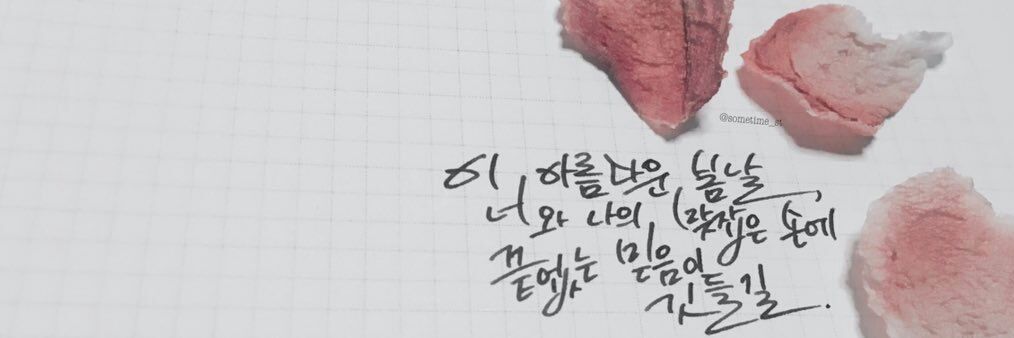 @sometime_st
이 아름다운 봄날,
너와 나의 맞잡은 손에
끝없는 믿음이
깃들길.